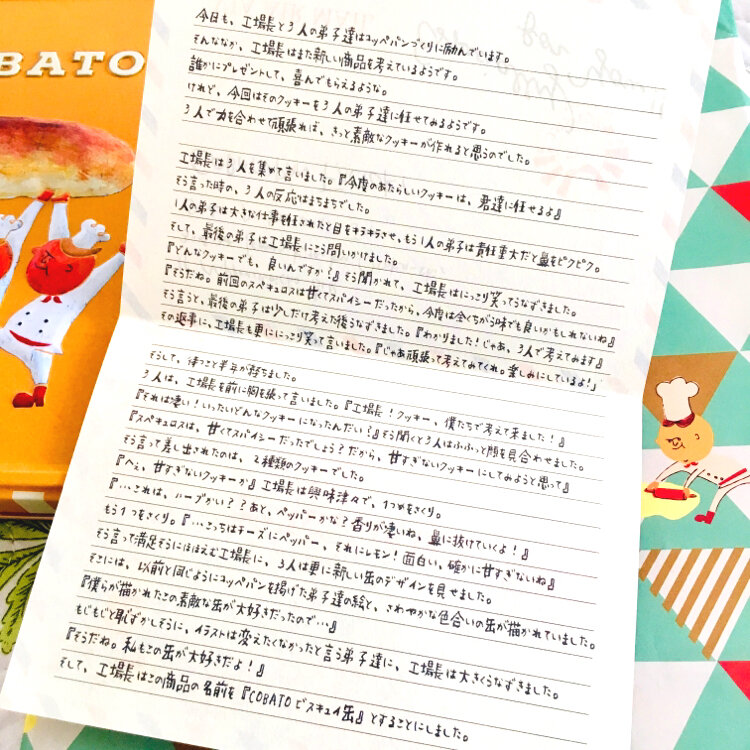 OBATO
今日も、工場長と3人の弟子達はコッペパンづくりに励んでいます。
そんななか、工場長はまた新しい商品を考えているようです。
誰かにプレゼントして、喜んでもらえるような。
けれど、今回はそのクッキーを3人の弟子達に任せてみるようです。
3人で力を合わせて頑張れば、きっと素敵なクッキーが作れると思うのでした。
工場長は3人を集めて言いました。『今度のあたらしいクッキーは、君達に任せるよ』
そう言った時の、3人の反応はまちまちでした。
1人の弟子は大きな仕事を任されたと目をキラキラさせ、もう1人の弟子は責任重大だと鼻をピクピク。
そして、最後の弟子は工場長にこう問いかけました。
『どんなクッキーでも、良いんですか?』そう聞かれて、工場長はにっこり笑ってうなずきました。
『そうだね。前回のスペキュロスは甘くてスパイシーだったから、今度は全くちがう味でも良いかもしれないね』
そう言うと、最後の弟子は少しだけ考えた後うなずきました。『わかりました!じゃあ、3人で考えてみます』
その返事に、工場長も更ににっこり笑って言いました。『じゃあ頑張って考えてみてくれ。楽しみにしているよ!』
そうして、待つこと半年が経ちました。
3人は、工場長を前に胸を張って言いました。『工場長!クッキー、僕たちで考えて来ました!』
『それは凄い!いったいどんなクッキーになったんだい?』そう聞くと3人はふふっと顔を見合わせました。
『スペキュロスは、甘くてスパイシーだったでしょう?だから、甘すぎないクッキーにしてみようと思って』
そう言って差し出されたのは、2種類のクッキーでした。
『へぇ、甘すぎないクッキーか』工場長は興味津々で、1つめをさくり。
『…これは、ハーブかい??あと、ペッパーかな?香りが凄いね、鼻に抜けていくよ!』
もう1つをさくり。『…こっちはチーズにペッパー、それにレモン!面白い、確かに甘すぎないね』
そう言って満足そうにほほえむ工場長に、3人は更に新しい缶のデザインを見せました。
そこには、以前と同じようにコッペパンを掲げた弟子達の絵と、さわやかな色合いの缶が描かれていました。
『僕らが描かれたこの素敵な缶が大好きだったので…』
もじもじと恥ずかしそうに、イラストは変えたくなかったと言う弟子達に、工場長は大きくうなずきました。
『そうだね。私もこの缶が大好きだよ!』
そして、工場長はこの商品の名前を『COBATO ビスキュイ缶』とすることにしました。